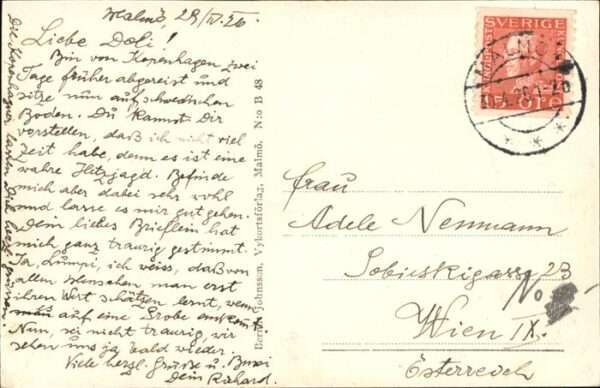 Malmö, 29/IV.26.
Liebe Doli!
Bin von Kopenhagen zwei
Tage früher abgereist und
sitze nun auf schwedischen
Boden. Du kannst Dir
vorstellen, daß ich nicht viel
Zeit habe, denn es ist eine
wahre Hetzjagd. Befinde
mich aber dabei sehr wohl
und lasse es mir gut gehen.
Dein liebes Brieflein hat
mich ganz traurig gestimmt.
Ja, Lumpi, ich weiss, daß von
allen Menschen man erst
ihren Wert schätzen lernt, wenn
man auf eine Probe
Nun, sei nicht traurig, wir
sehen uns ja bald wieder.
Viele herzl. Grüße u. Bussi
Dein Richard.
Die Kopenhagner lassen Dich herzl. grüssen
Berndt Johnsson, Vykortsförlag, Malmö. N:o B 48
SVERIGE
15 ÖRE
MALMÖ
Frau
Adele Neumann
Sobieskigasse 23
No
Wien IX.
Österreich